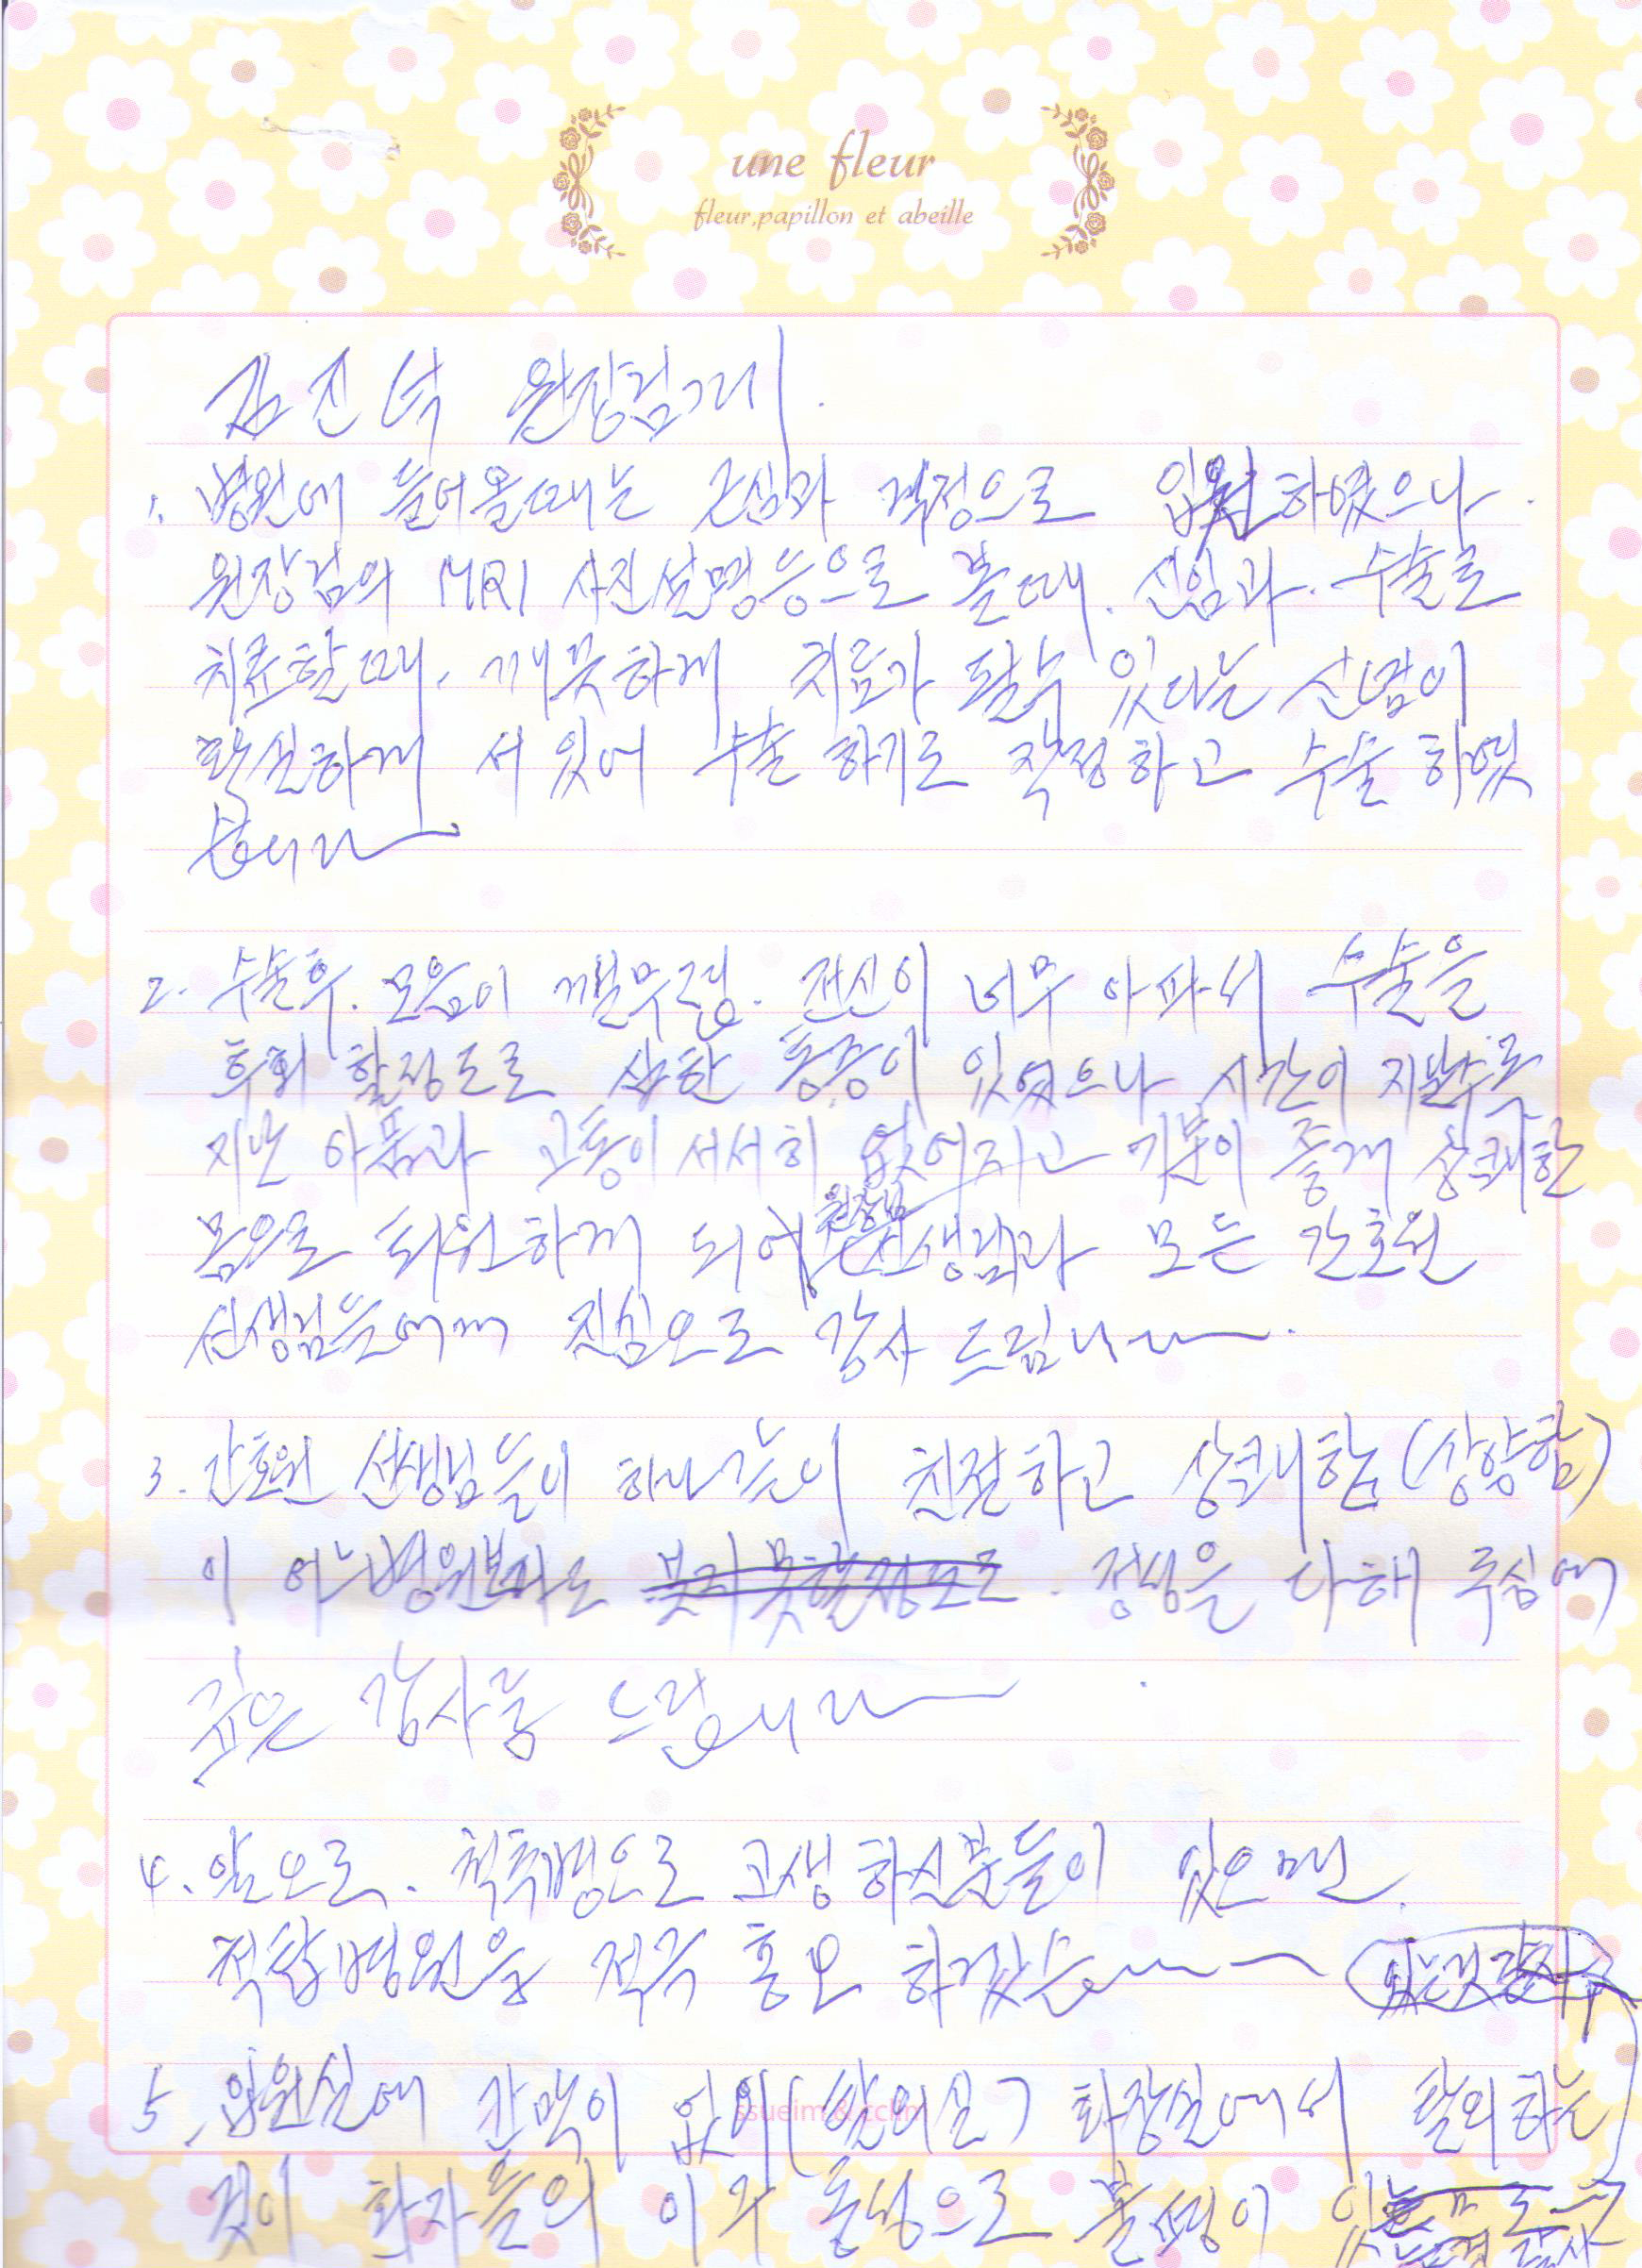 une fleur
fleur,papillon et abeille
김진석 원장님께.
1. 병원에 들어올때는 근심과 걱정으로 입원하였으나.
원장님의 MRI 사진설명등으로 볼때. 신임과. 수술로
치료할때. 깨끗하게 치료가 될수 있다는 신념이
확실하게 서 있어 수술 하기로 작정하고 수술 하였
습니다.
2. 수술후. 모음이 전신이 너무 아파서 수술을
후회 할정도로 심한 통증이 있었으나 시간이 지날수록
지난 아픔과 고통이 서서히 없어지고 기분이 좋게 상쾌한
몸으로 퇴원하게 되어 원장님
선생님과 모든 간호원
선생님들에게 진심으로 감사 드립니다.
3. 간호원 선생님들이 하나같이 친절하고 상쾌함(상량함)
이 어느병원보다도 정성을 다해 주심에
깊은 감사를 드립니다.
4. 앞으로. 척추병으로 고생 하신분들이 있으면.
병원을 적극 홍보 하겠습
5. 입원실에 칸막이 없이(탈의실) 화장실에서 탈의하는
것이 환자들의 불평이
ssueim & cclim